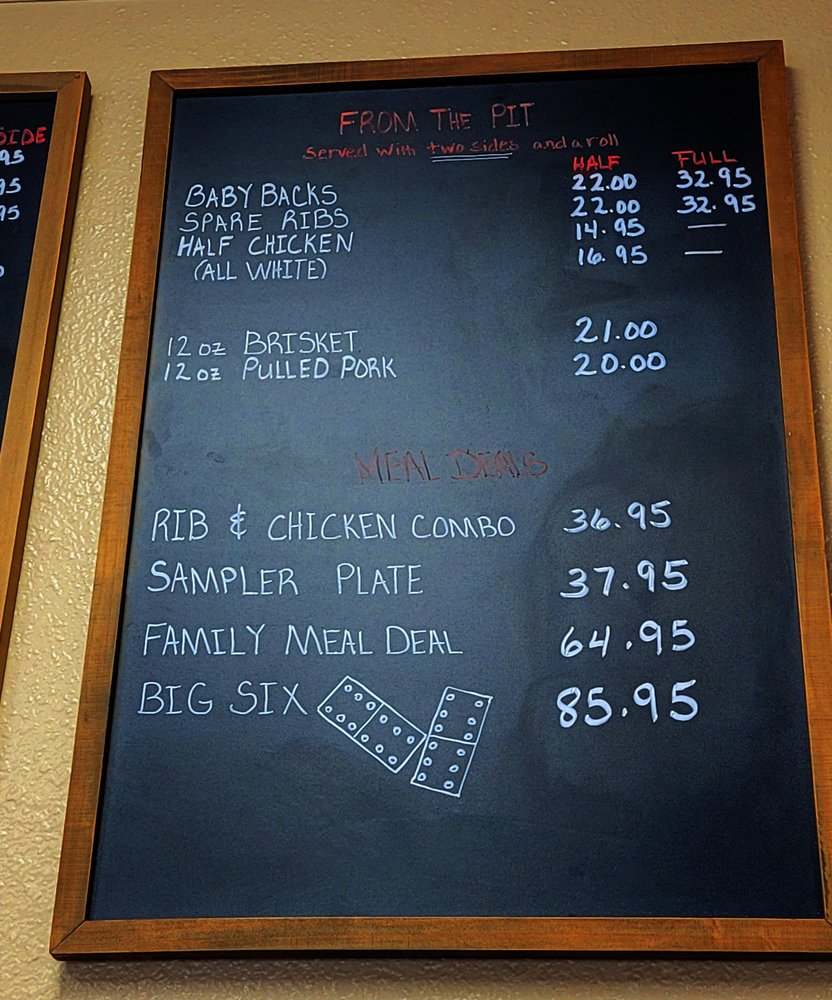 SIDE
95
95
95
FROM THE PIT
Served with two sides and a roll
HALF FULL
BABY BACKS 22.00 32.95
SPARE RIBS 22.00 32.95
HALF CHICKEN 14.95 —
(ALL WHITE) 16.95 —
12 oz BRISKET 21.00
12 oz PULLED PORK 20.00
MEAL DEALS
RIB & CHICKEN COMBO 36.95
SAMPLER PLATE 37.95
FAMILY MEAL DEAL 64.95
BIG SIX 85.95